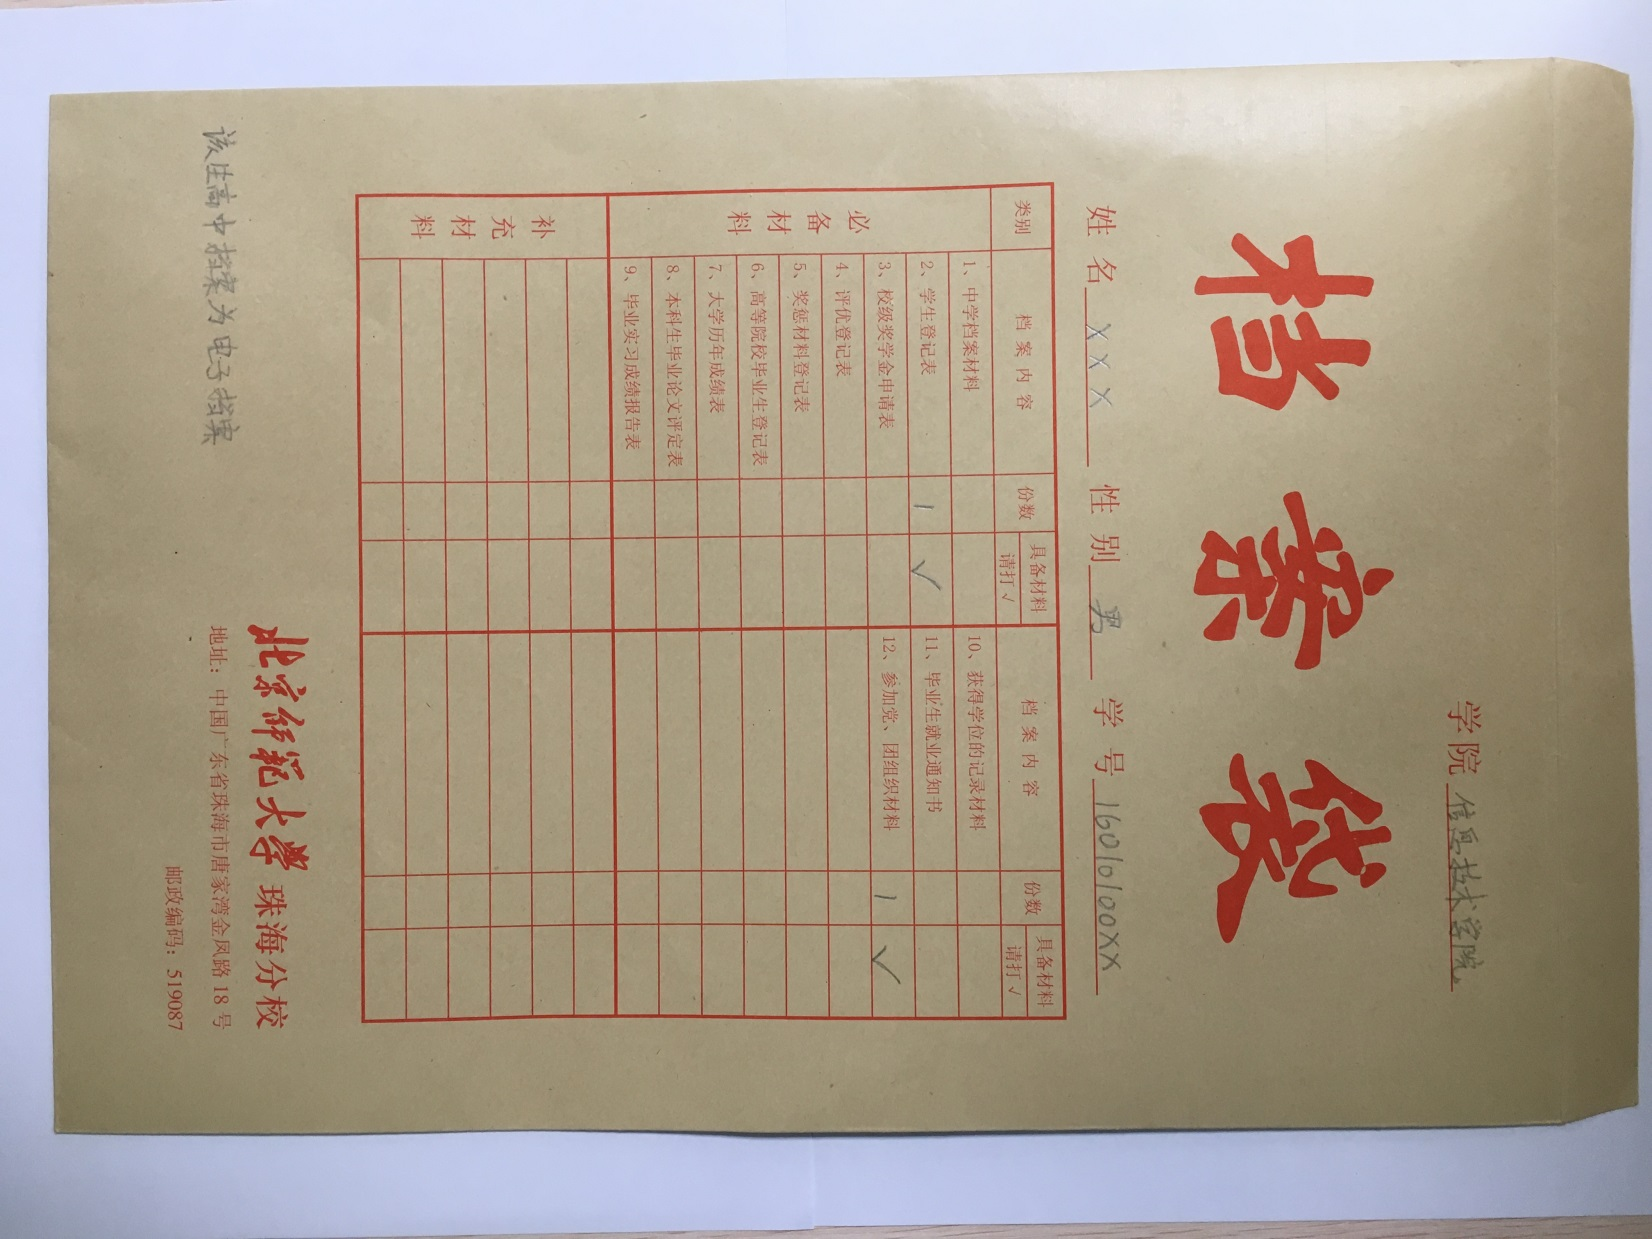 学院 信息技术学院
档案袋
姓名 XXX 性别 男 学号 1601010 0XX
类别 档案内容 份数 具备材料请打√ 档案内容 份数 具备材料请打√
必备材料
1、中学档案材料 10、获得学位的记录材料
2、学生登记表 1 √ 11、毕业生就业通知书
3、校级奖学金申请表 12、参加党、团组织材料 1 √
4、评优登记表
5、奖惩材料登记表
6、高等院校毕业生登记表
7、大学历年成绩表
8、本科生毕业论文评定表
9、毕业实习成绩报告表
补充材料
北京师范大学 珠海分校
地址：中国广东省珠海市唐家湾金凤路18号
邮政编码：519087
该生高中档案为电子档案